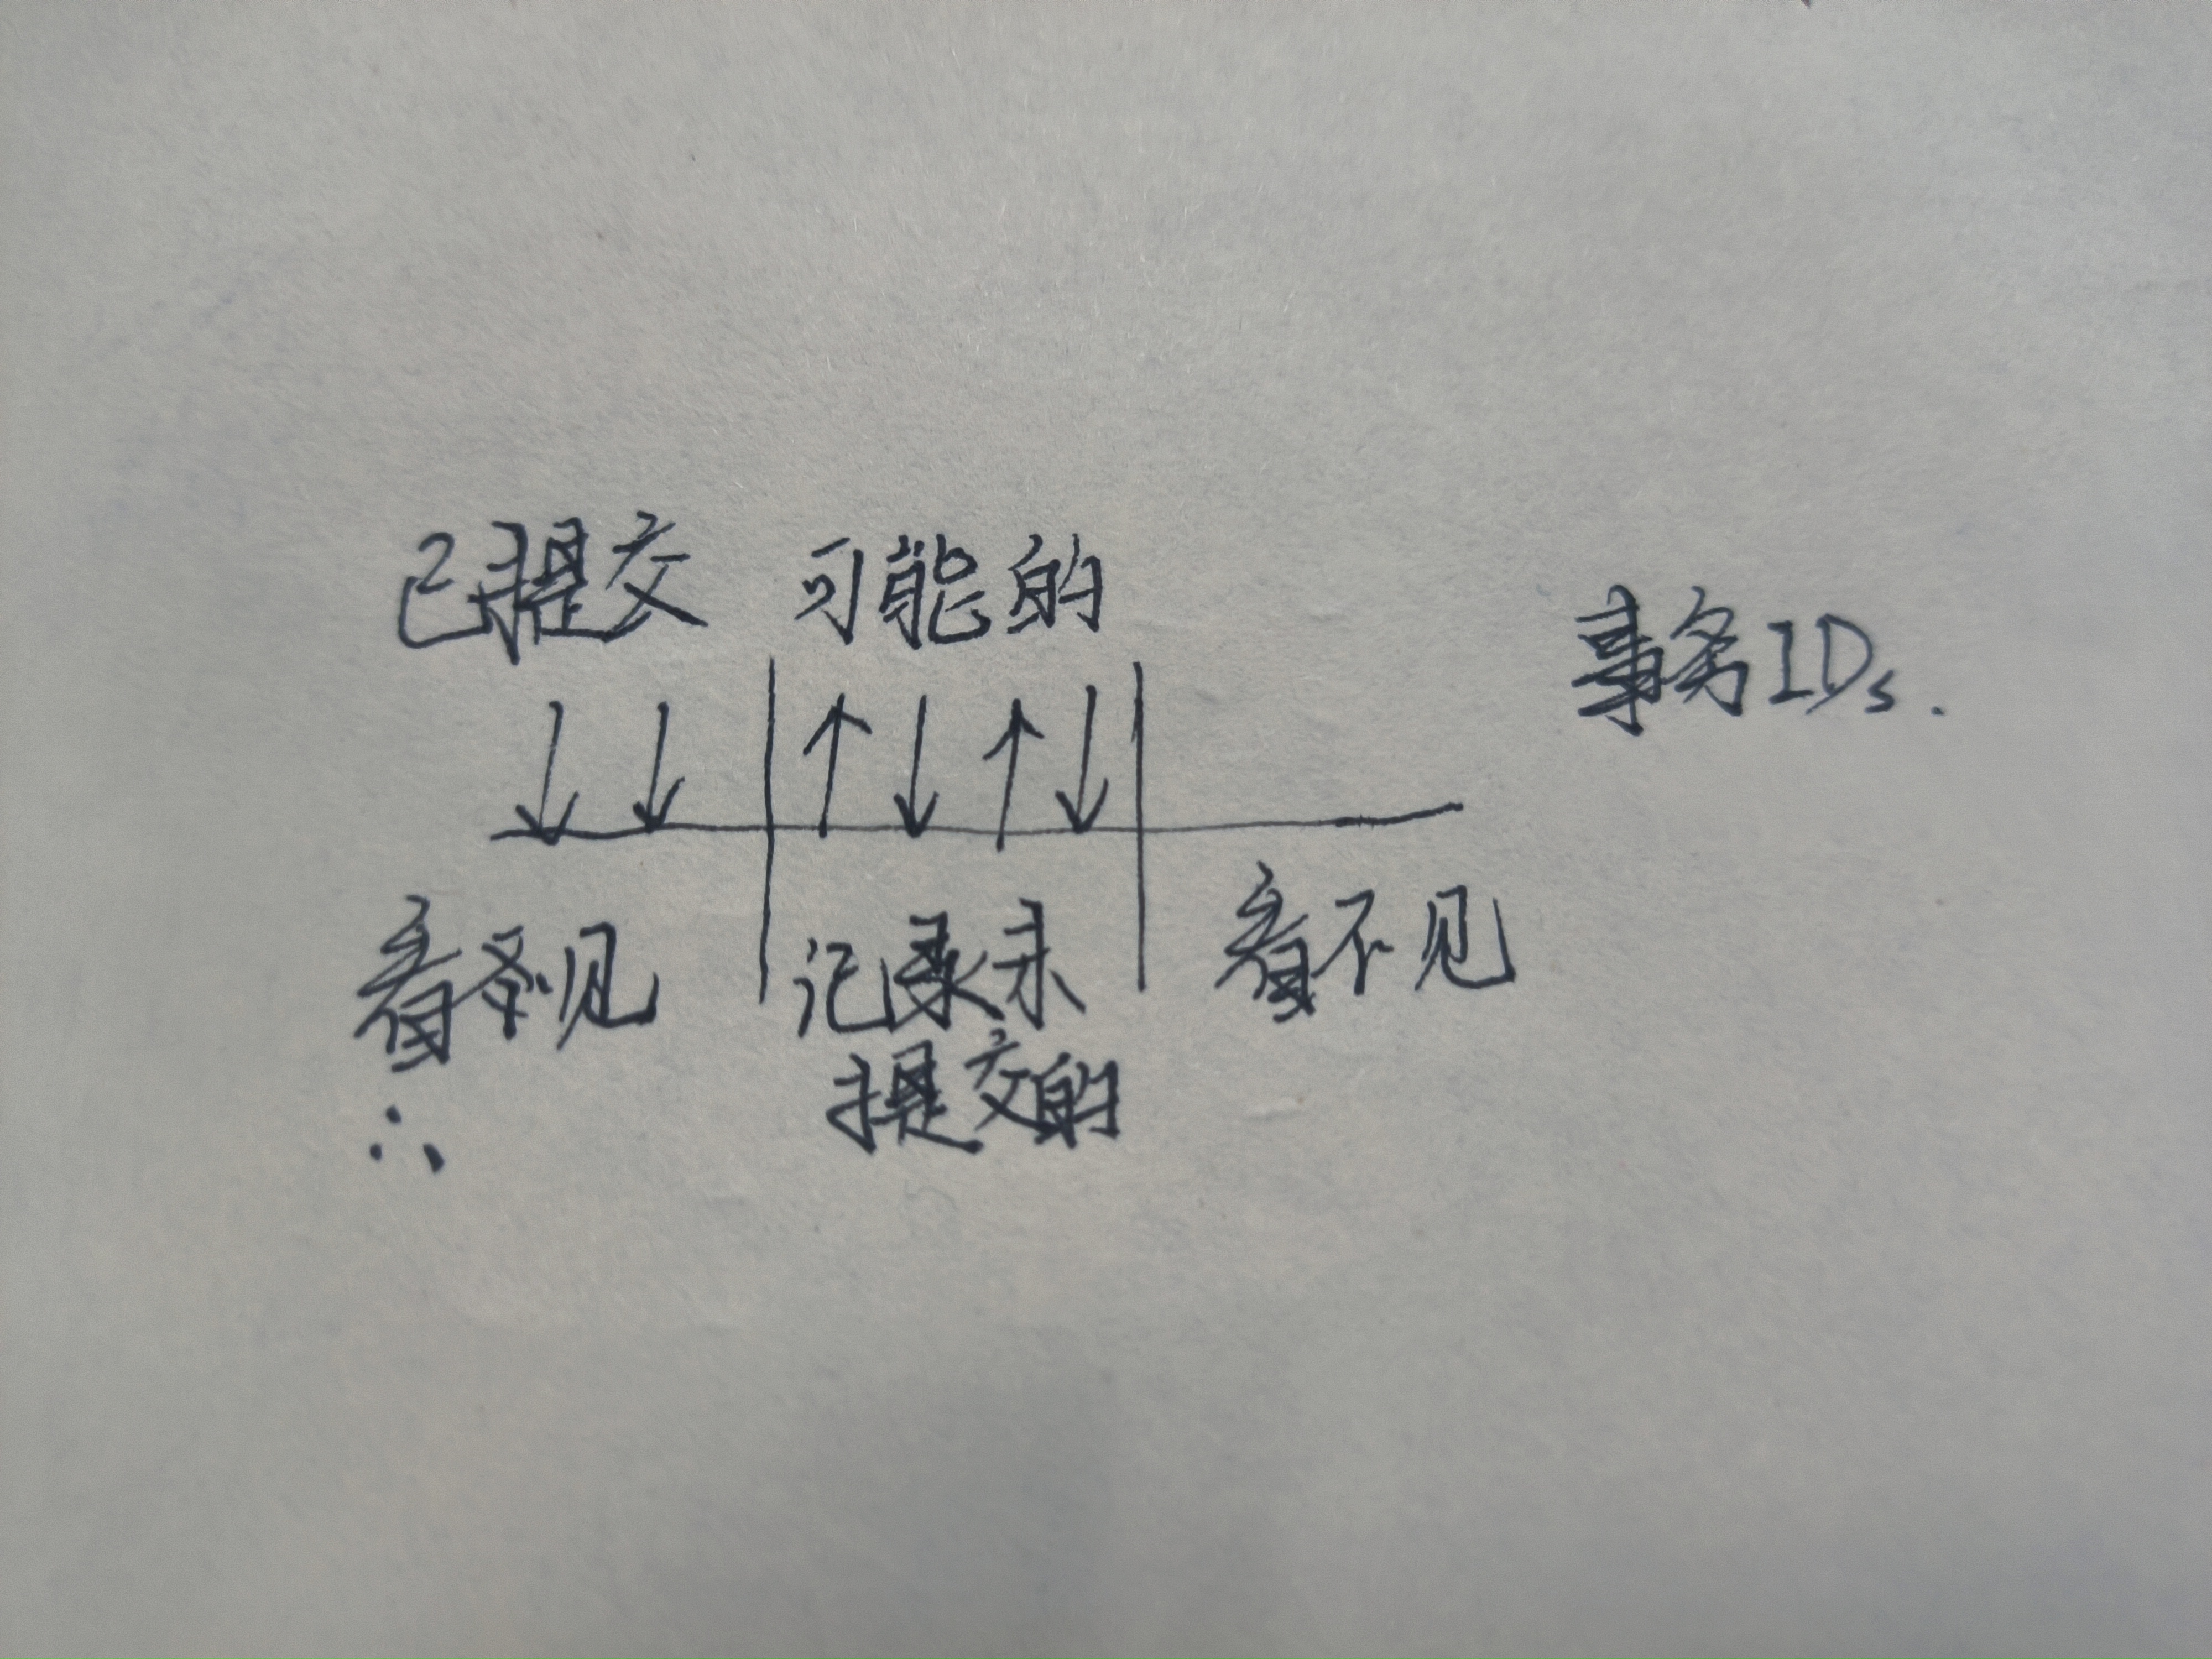 已提交 可能的
事务IDs.
看得见 记录未 看不见
提交的
∴